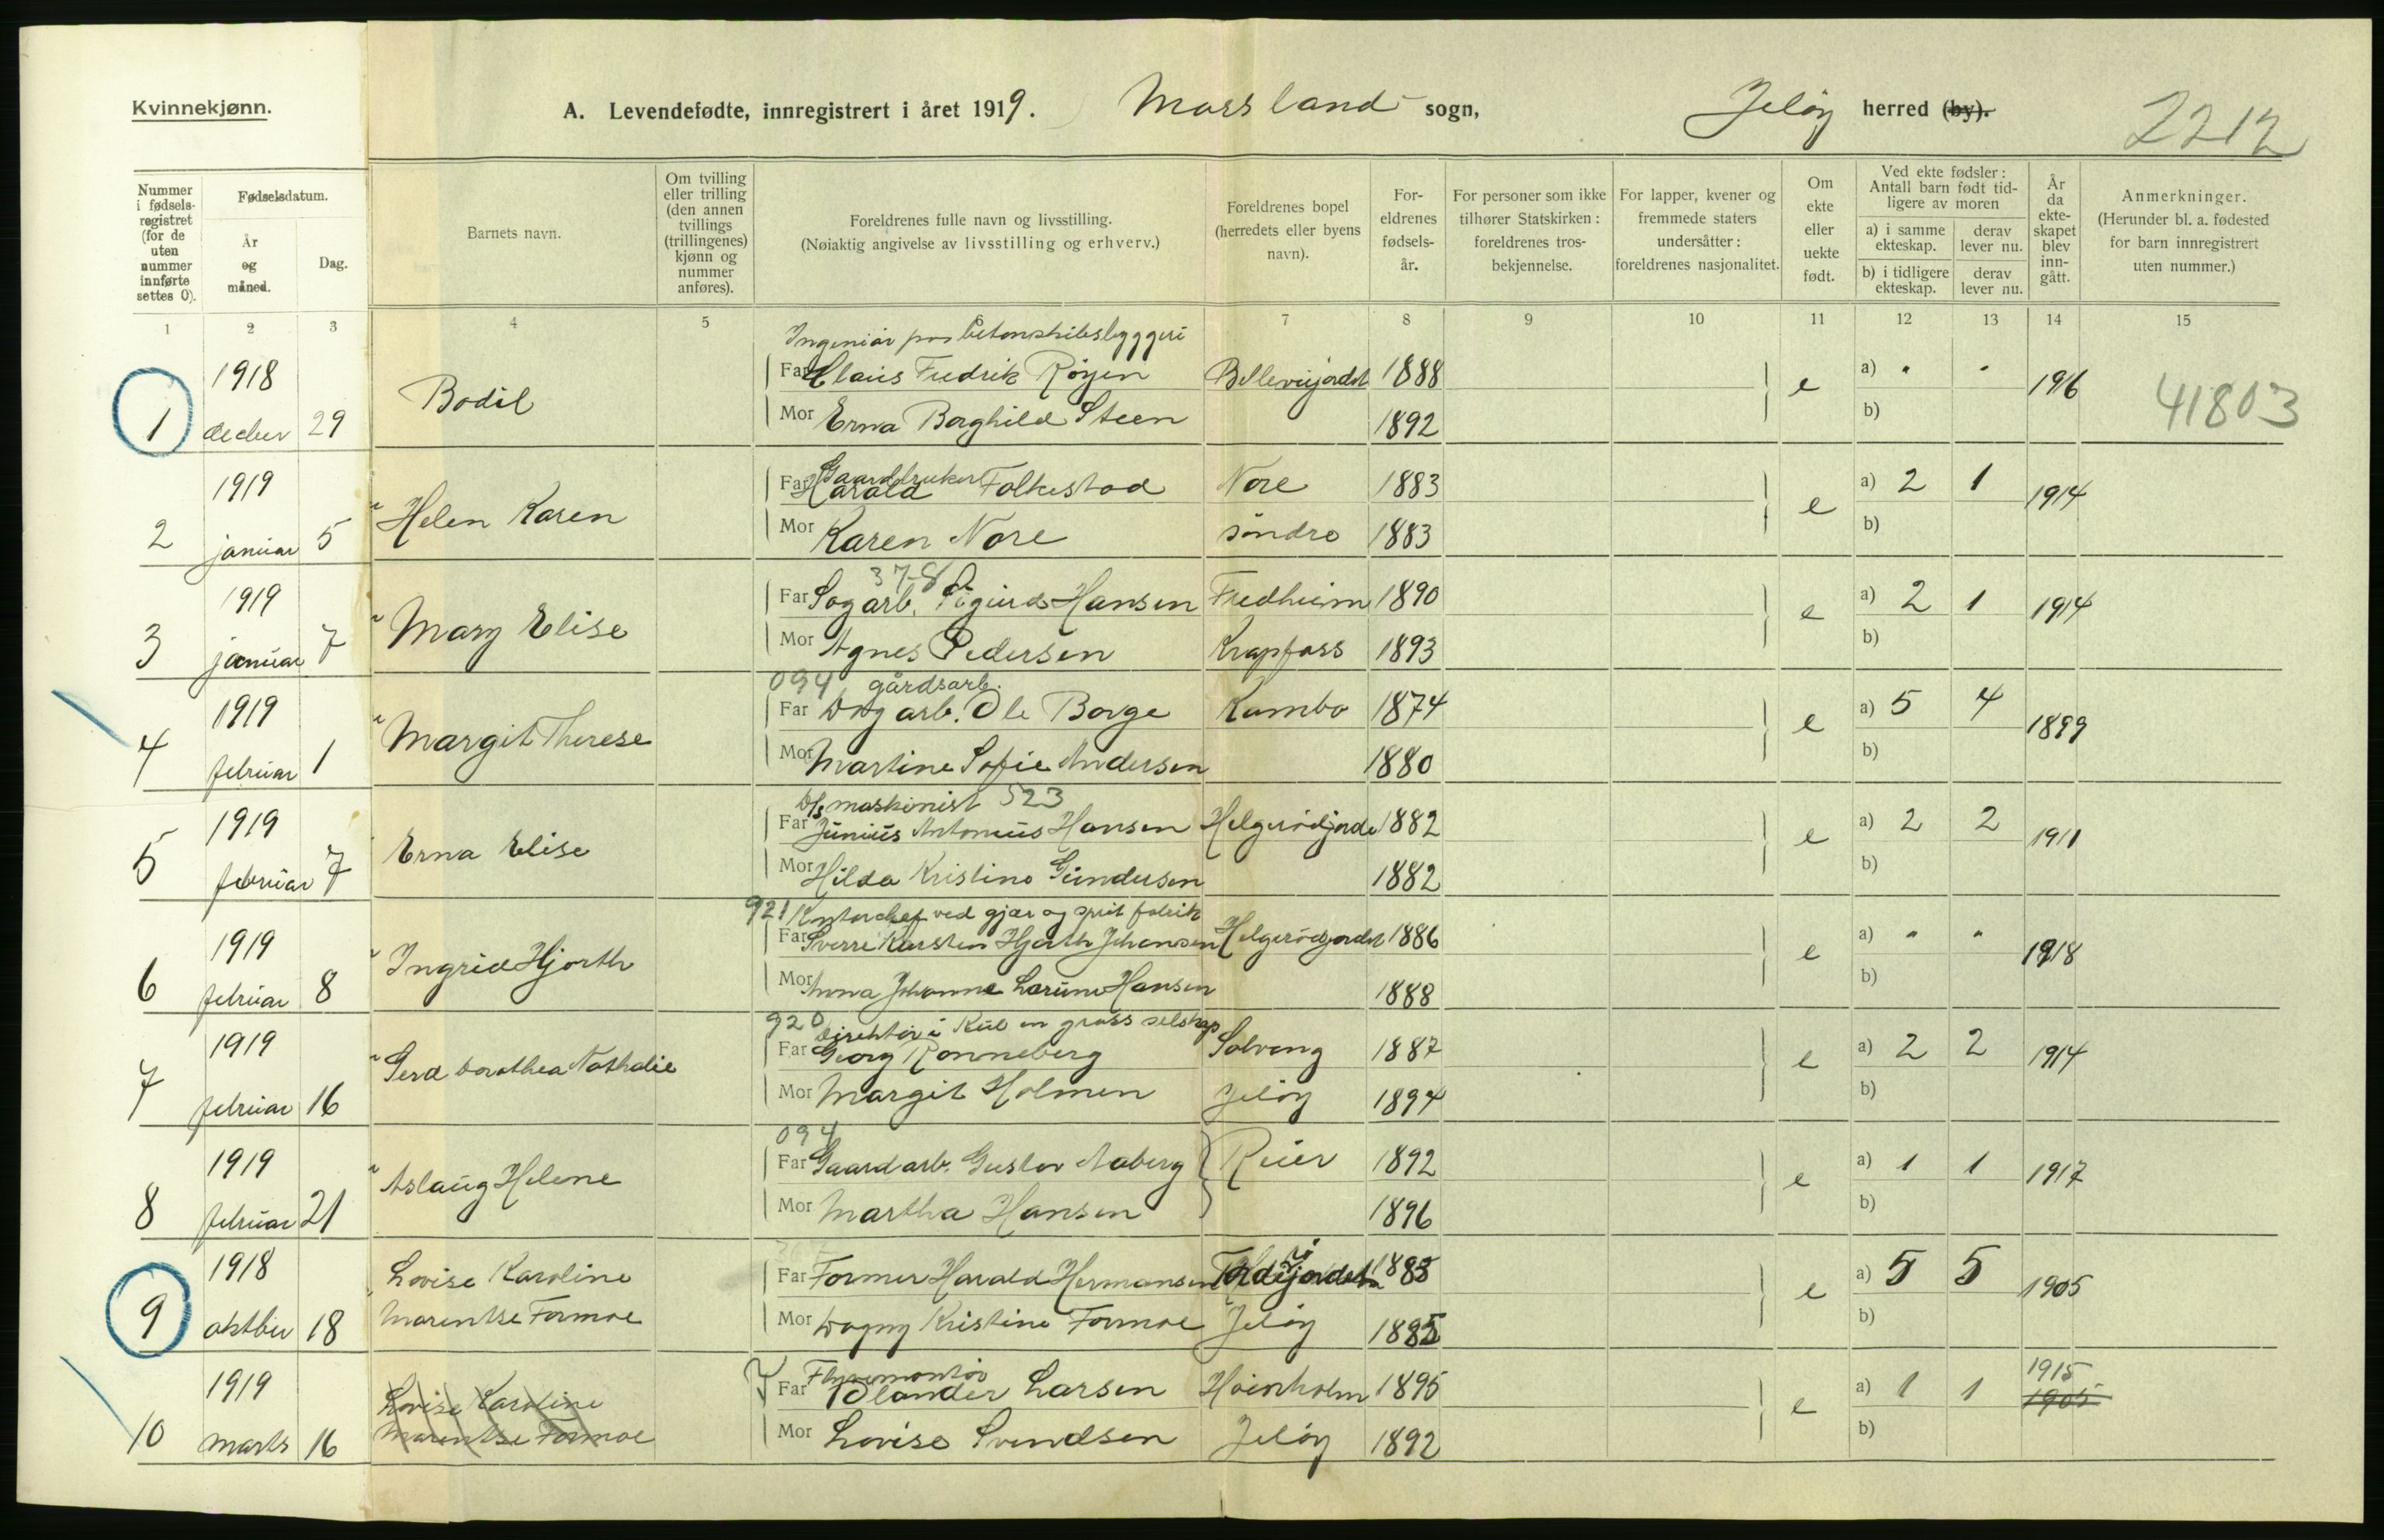 Kvinnekjønn.
A. Levendefødte, innregistrert i året 1919. Mossland sogn, Jeløy herred (by).
2212
Nummer i fødsels-registret (for de uten nummer innførte settes 0).
Fødselsdatum.
År og måned.
Dag.
Barnets navn.
Om tvilling eller trilling (den annen tvillings (trillingenes) kjønn og nummer anføres).
Foreldrenes fulle navn og livsstilling.
(Nøiaktig angivelse av livsstilling og erhverv.)
Foreldrenes bopel (herredets eller byens navn).
For-eldrenes fødsels-år.
For personer som ikke tilhører Statskirken: foreldrenes tros-bekjennelse.
For lapper, kvener og fremmede staters undersåtter: foreldrenes nasjonalitet.
Om ekte eller uekte født.
Ved ekte fødsler: Antall barn født tid-ligere av moren
a) i samme ekteskap.
derav lever nu.
b) i tidligere ekteskap.
derav lever nu.
År da ekte-skapet blev inn-gått.
Anmerkninger.
(Herunder bl. a. fødested for barn innregistrert uten nummer.)
1 2 3 4 5 7 8 9 10 11 12 13 14 15
Ingeniør paa betonskibsbyggeri
1918
Far Claus Fredrik Røyen Bellevuejordet 1888 e a) " " 1916
1 decber 29 Bodil
Mor Erna Borghild Steen 1892 b)
41803
Gaardbruker
1919 Far Harald Folkestad Nore 1883 e a) 2 1 1914
2 januar 5 Helen Karen
Mor Karen Nore søndre 1883 b)
378
1919 Far Sagarb. Sigurd Hansen Fredheim 1890 e a) 2 1 1914
3 januar 7 Mary Elise
Mor Agnes Pedersen Krapfoss 1893 b)
094 gårdsarb.
1919 Far Dagarb. Ole Borge Kambo 1874 e a) 5 4 1899
4 februar 1 Margit Therese
Mor Martine Sofie Andersen 1880 b)
D/s maskinist 523
1919 Far Junius Antonius Hansen Helgerødjorde 1882 e a) 2 2 1911
5 februar 7 Erna Elise
Mor Hilda Kristine Gundersen 1882 b)
921 Kontorchef ved gjær og sprit fabrik
1919 Far Sverre Karsten Hjorth Johansen Helgerødjordet 1886 e a) " " 1918
6 februar 8 Ingrid Hjorth
Mor Anna Johanne Laurine Hansen 1888 b)
920 Direktør i Kul en gross selskap
1919 Far Georg Rønneberg Solveng 1887 e a) 2 2 1914
7 februar 16 Gerd Dorothea Nathalie
Mor Margit Holmen Jeløy 1894 b)
094
1919 Far Gaardarb. Gustav Aaberg Reier 1892 e a) 1 1 1917
8 februar 21 Aslaug Helene
Mor Martha Hansen 1896 b)
1918 Far Former Harald Hermansen 1883 e a) 5 5 1905
9 oktber 18 Lovise Karoline Marentse Formoe
Mor Dagny Kristine Formoe Jeløy 1885 b)
1919 Far Larsen 1895 e a) 1 1 1915 1905
10 marts 16 Lovise Karoline Marentse Formoe
Mor Lovise Svendsen Jeløy 1892 b)